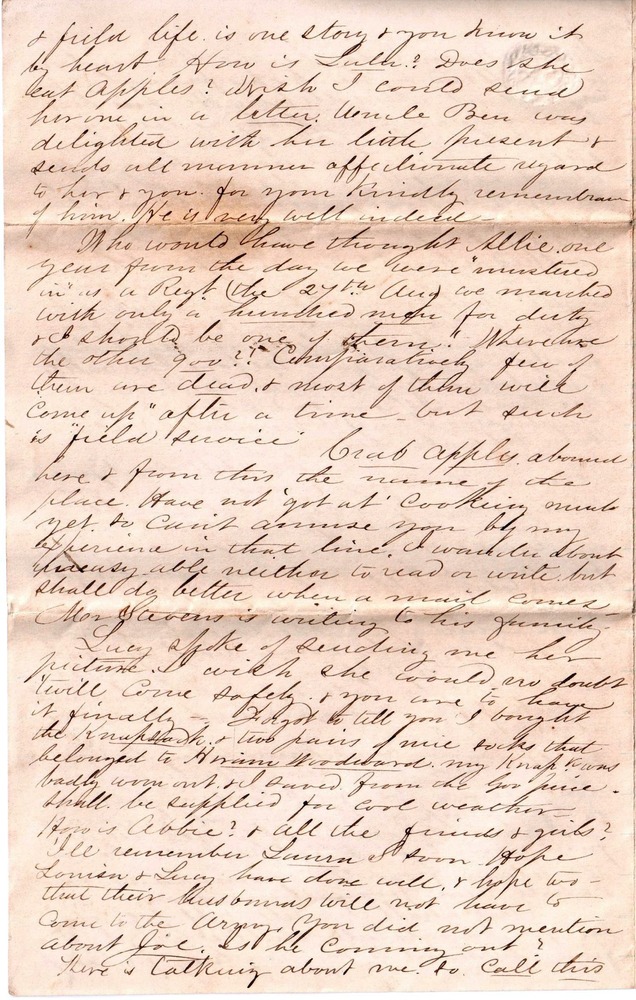 & field life is one story & you know it
by heart. How is Lulu? Does she
eat Apples? Wish I could send
her one in a letter. Uncle Ben was
delighted with her little present &
sends all manner affectionate regard
to her & you for your kindly remembrance
of him. He is very well indeed -
Who would have thought Allie one
year from the day we were "mustered
in" as a Regt. (the 27th Aug) we marched
with only a hundred men for duty
& I should be one of them." Where are
the other 900?? Comparatively few of
them are dead, & most of them will
"come up" after a time - but such
is "field service"
Crab apples abound
here & from this the name of the
place. Have not 'got at' cooking much
yet. So can't amuse you by my
experience in that line. I wander about
uneasy able neither to read or write but
shall do better when a mail comes
Mr Stevens is writing to his family -
Lucy spoke of sending me her
picture. I wish she would no doubt
'twill come safely. & you are to have
it finally - Forgot to tell you I bought
the Knapsack, & two pairs of nice socks that
belonged to Hiram Woodward. my Knapk was
badly worn out & I saved from the Gov price -
Shall be supplied for cool weather
How is Abbie? & all the friends & girls?
I'll remember Laura soon. Hope
Louisa & Lucy have done well, & hope too -
that their husbands will not have to
come to the Army. You did not mention
about Joe. Is he coming out?
There is talking about me. So call this